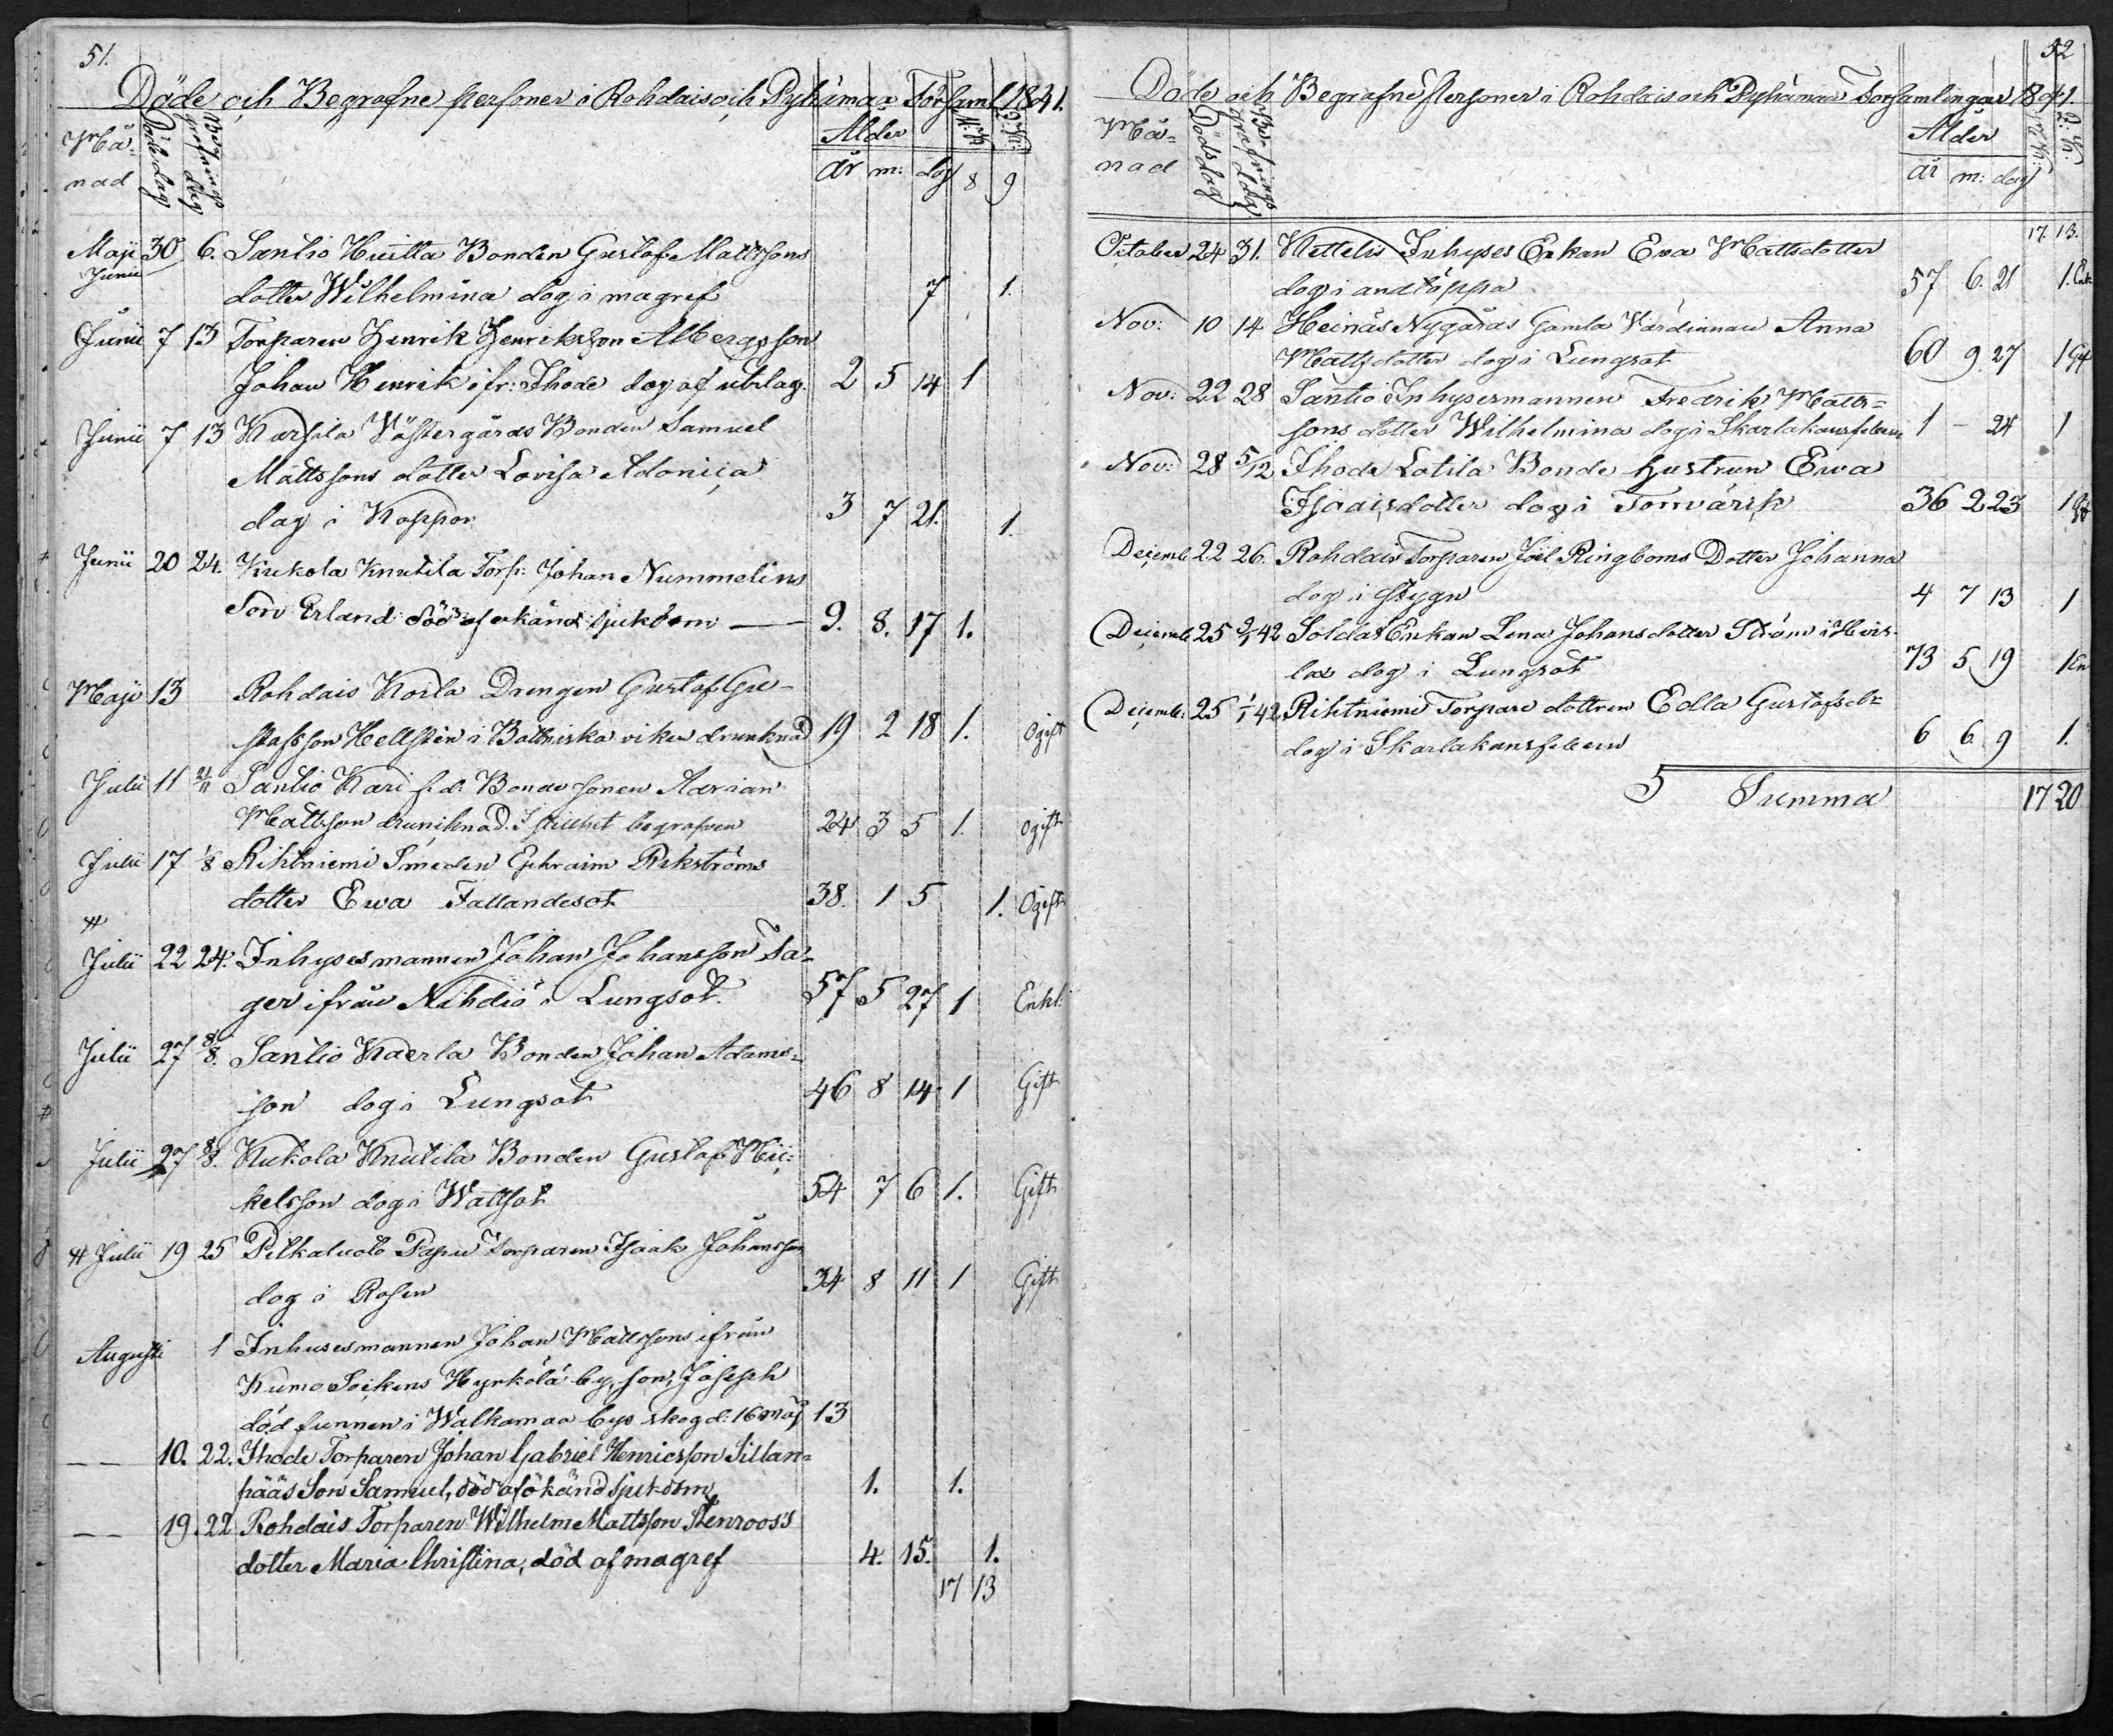 51.
Döde och Begrafne personer i Rohdais och Pyhämaa Församl. 1841.
Må=
nad
Dödsdag
Begrafnings dag
Ålder
år m: dag
M:K. Q:K:
8 9
Maji 30 6. Santio Huitta Bonden Gustaf Mattssons
Junii dotter Wilhelmina dog i magref 7 1.
Junii 7 13 Torparen Henrik Henriksson Albergs son
Johan Henrik ifr: Ihode dog af utslag. 2 5 14 1
Junii 7 13 Varhela Västergårds Bonden Samuel
Mattssons dotter Lovisa Adonica
dog i Koppor 3 7 21. 1.
Junii 20 24. Kukola Knutila Torp: Johan Nummelins
Son Erland död af okänd sjukdom — 9. 8. 17 1.
Maji 13 Rohdais Koila Drengen Gustaf Gu-
stafsson Hellsten i Bottniska viken drunknad 19 2 18 1. Ogift
Julii 11 21/11 Santio Kari f.d. Bonde sonen Adrian
Mattsson drunknad. I stillhet begrafven 24 3 5 1. Ogift
Julii 17 1/8 Rihtniemi Smeden Ephraim Rikströms
dotter Ewa Fallandesot 38. 1 5 1. Ogift
#
Julii 22 24. Inhysesmannen Johan Johansson Sa-
ger ifrån Nihdiö i Lungsot. 57 5 27 1 Enkl:
Julii 27 8/8. Santio Kaerla Bonden Johan Adams=
son dog i Lungsot 46 8 14 1 Gift
Julii 27 8/8. Kukola Knutila Bonden Gustaf Mic=
kelsson dog i Wattsot 54 7 6 1. Gift
# Julii 19 25 Pitkäluoto Papu torparen Isaak Johansson
dog i Rosen 34 8 11 1 Gift
Augusti 1 Inhusesmannen Johan Mattssons ifrån
Kumo Sockens Hyrkölä by, son, Joseph
död funnen i Walkamaa bys skog d: 16 Maj 13
— — 10. 22. Ihode Torparen Johan Gabriel Henricsson Sillan=
pääs Son Samuel, död af okänd sjukdom 1. 1.
— — 19. 22 Rohdais Torparen Wilhelm Mattsson Stenroos's
dotter Maria Christina, död af magref 4. 15. 1.
17 13
52
Döde och Begrafne personer i Rohdais och Pyhämaa Församlingar 1841.
Må=
nad
Dödsdag
Begrafnings dag
Ålder
år m: dag
M:K: Q:K:
17. 13.
October 24 31. Kettelis Inhyses Enkan Eva Mattsdotter
dog i andtäppa 57 6. 21 1. Enk.
Nov: 10 14 Heinäs Nygårds Gamla Värdinnan Anna
Mattsdotter dog i Lungsot 60 9. 27 1 Gift
Nov: 22 28 Santio Inhysesmannen Fredrik Matts=
sons dotter Wilhelmina dog i Skarlakansfebern 1 - 24 1
Nov: 28 5/12 Ihode Lotila Bonde hustrun Ewa
Isaacsdotter dog i Tornvärk 36 2 23 1 Gift
Decemb: 22 26. Rohdais Torparen Joël Ringboms Dotter Johanna
dog i stygn 4 7 13 1
Decemb 25 2/1 42 Soldat Enkan Lena Johansdotter Ström i Heis-
las dog i Lungsot 73 5 19 1 En
Decemb: 25 1/1 42 Rihtniemi Torpare dottren Edla Gustafsdr
dog i Skarlakansfebern 6 6 9 1.
Summa 17 20